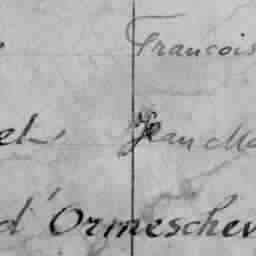 Francois
et Jean Ma
d'Ormeschev